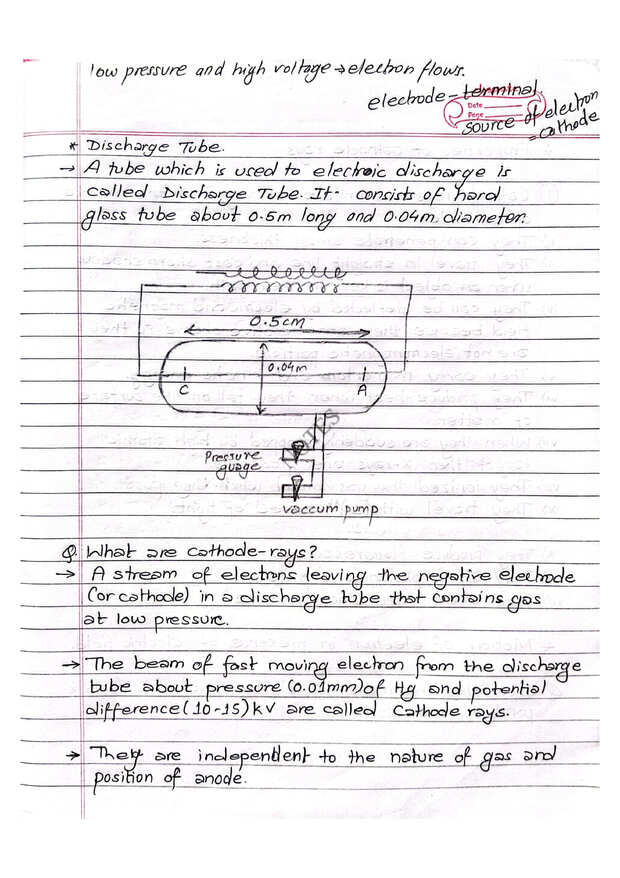 low pressure and high voltage → electron flows.
electrode - terminal
Date
Page
source of electron
= cathode
* Discharge Tube.
→ A tube which is used to electroic discharge is
called Discharge Tube. It consists of hard
glass tube about 0.5m long and 0.04m diameter.
0.5cm
0.04m
C
A
NOTES
Pressure
guage
vaccum pump
Q. What are cathode-rays?
→ A stream of electrons leaving the negative electrode
(or cathode) in a discharge tube that contains gas
at low pressure.
→ The beam of fast moving electron from the discharge
tube about pressure (0.01mm) of Hg and potential
difference (10-15) kV are called Cathode rays.
→ They are independent to the nature of gas and
position of anode.